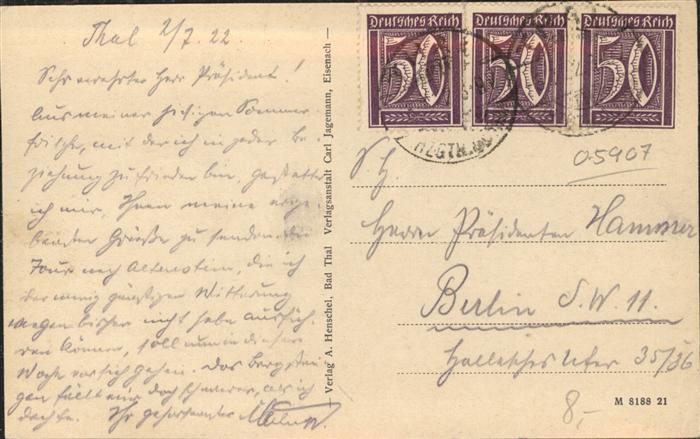 Thal 2/7. 22.
Sehr verehrter Herr Präsident!
Aus meiner hiesigen Sommer
frische, mit der ich in jeder Be
ziehung zufrieden bin, gestatte
ich mir, Ihnen meine erge
bensten Grüße zu senden. Die
Tour nach Altenstein, die ich
der wenig günstigen Witterung
wegen bisher nicht habe ausfüh
ren können, soll nun in dieser
Woche vor sich gehen. Das Bergstei
gen fällt mir doch schwerer, als ich
dachte. Ihr gehorsamster
Verlag A. Henschel, Bad Thal Verlagsanstalt Carl Jagemann, Eisenach
Deutsches Reich
50
Deutsches Reich
50
Deutsches Reich
50
HZGTH.
05907
S. H.
Herrn Präsidenten Hammer
Berlin S.W. 11.
Hallesches Ufer 35/36
M 8188 21
8,-